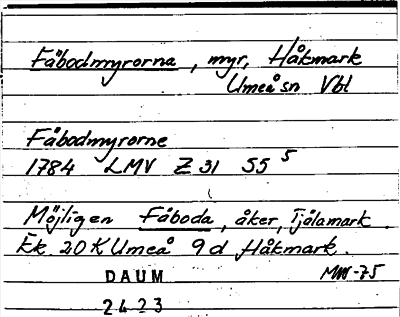 Fäbodmyrorna, myr, Håkmark
Umeå sn Vbl
Fäbodmyrorne
1784 LMV Z 31 55 5
Möjligen Fäboda, åker, Tjälamark.
Ek. 20 K Umeå 9 d Håkmark.
DAUM MM-75
2423